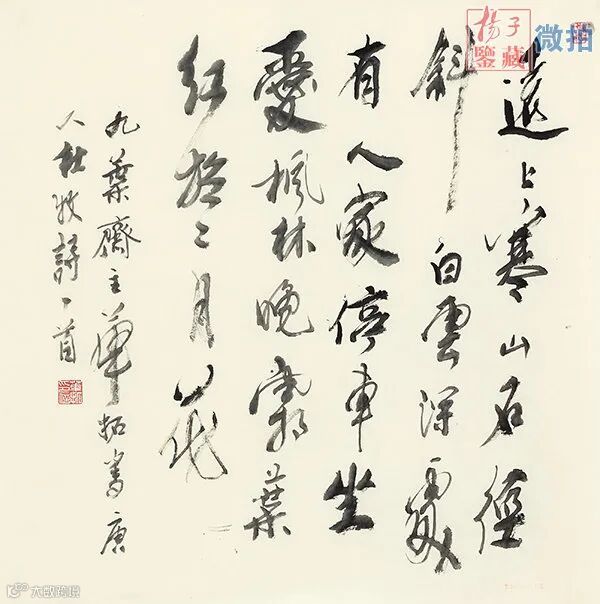 遠上寒山石徑
斜白雲深處
有人家停車坐
愛楓林晚霜葉
紅於二月花
九葉齋主華拓書唐
人杜牧詩一首
楊子
鑒藏
微拍
大數跨境